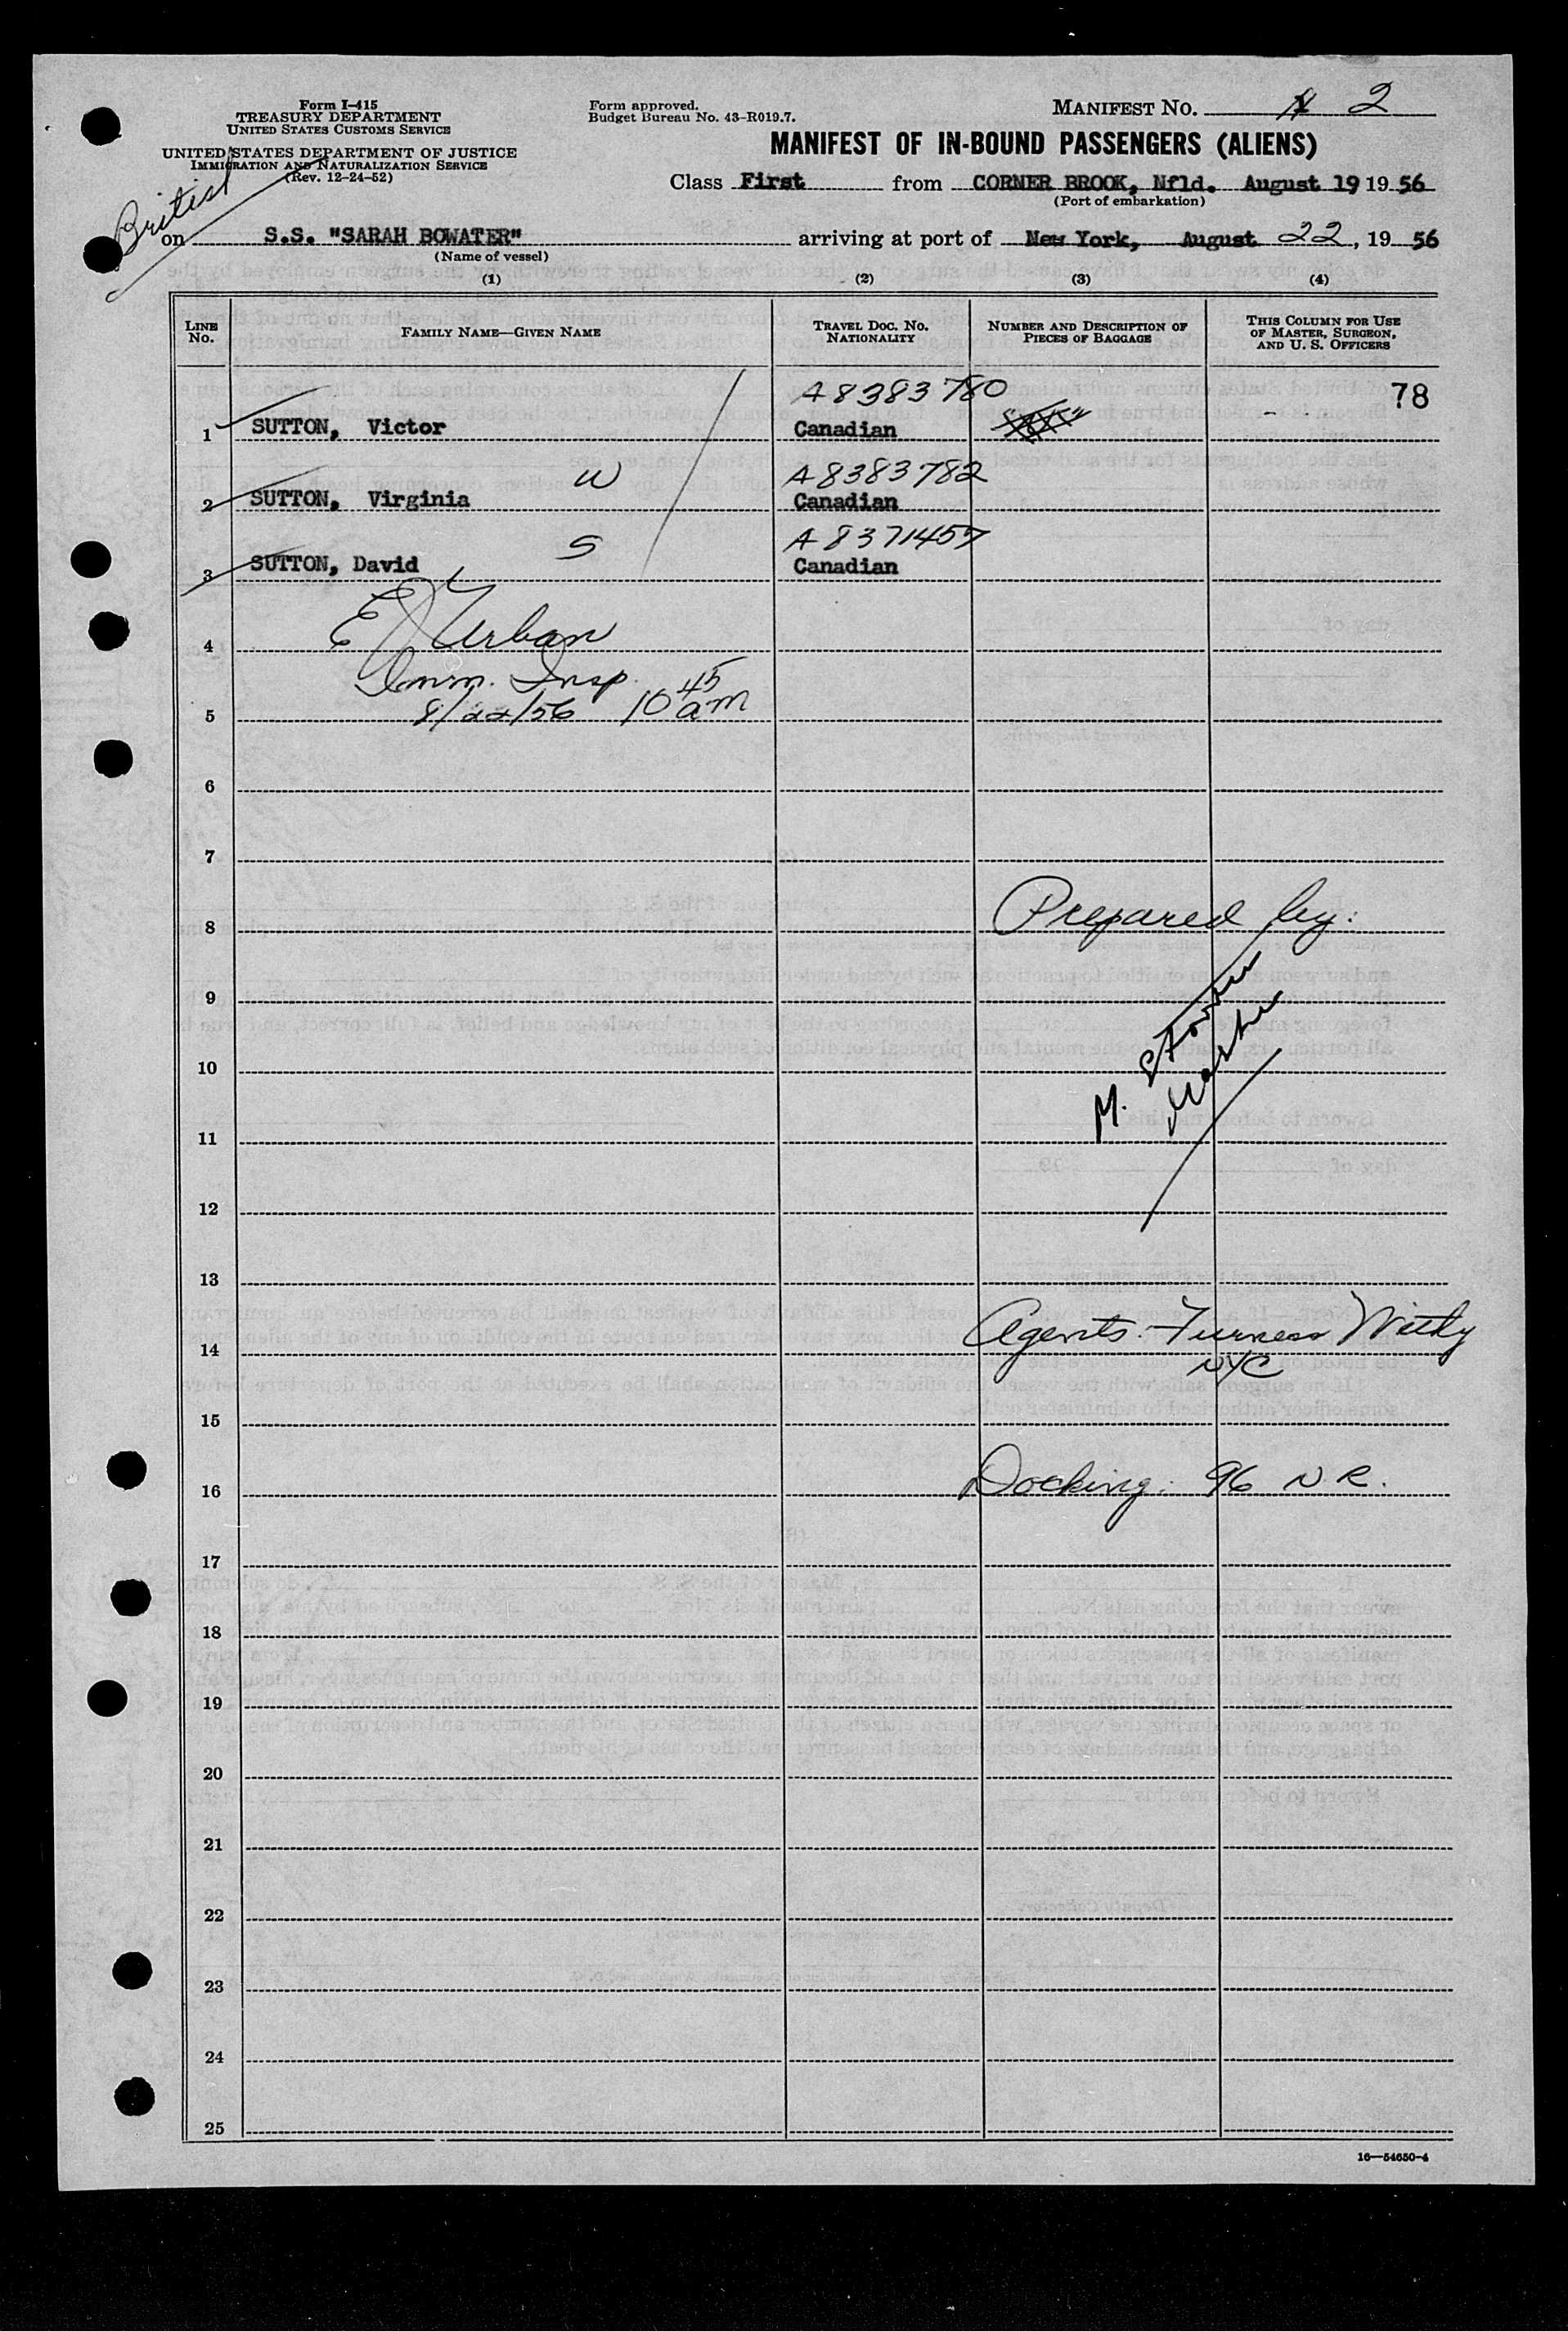 Form I-415
TREASURY DEPARTMENT
UNITED STATES CUSTOMS SERVICE
UNITED STATES DEPARTMENT OF JUSTICE
IMMIGRATION AND NATURALIZATION SERVICE
(Rev. 12-24-52)
Form approved.
Budget Bureau No. 43-R019.7.
MANIFEST NO. 2
MANIFEST OF IN-BOUND PASSENGERS (ALIENS)
Class First from CORNER BROOK, Nfld. August 19 19 56
(Port of embarkation)
British
on S.S. "SARAH BOWATER" arriving at port of New York, August 22, 19 56
(Name of vessel)
(1) (2) (3) (4)
LINE No. FAMILY NAME—GIVEN NAME TRAVEL DOC. NO. NATIONALITY NUMBER AND DESCRIPTION OF PIECES OF BAGGAGE THIS COLUMN FOR USE OF MASTER, SURGEON, AND U. S. OFFICERS
A8383780 78
1 SUTTON, Victor Canadian
W A8383782
2 SUTTON, Virginia Canadian
S A8371457
3 SUTTON, David Canadian
4 E J Urban
Imm. Insp.
5 8/22/56 10 45 am
6
7
8 Prepared by:
9
10
M.
11
12
13
14 Agents: Furness Withy
NYC
15
16 Docking: 96 N R.
17
18
19
20
21
22
23
24
25
16—54650-4